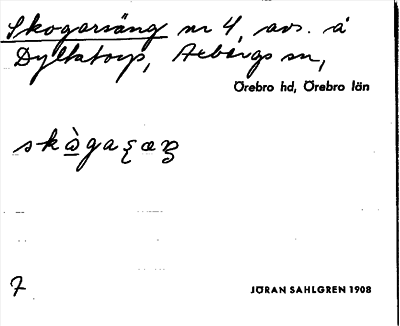 Skogarsäng nr 4, avs. å
Dylktorp, Axbergs sn,
Örebro hd, Örebro län
7
JÖRAN SAHLGREN 1908